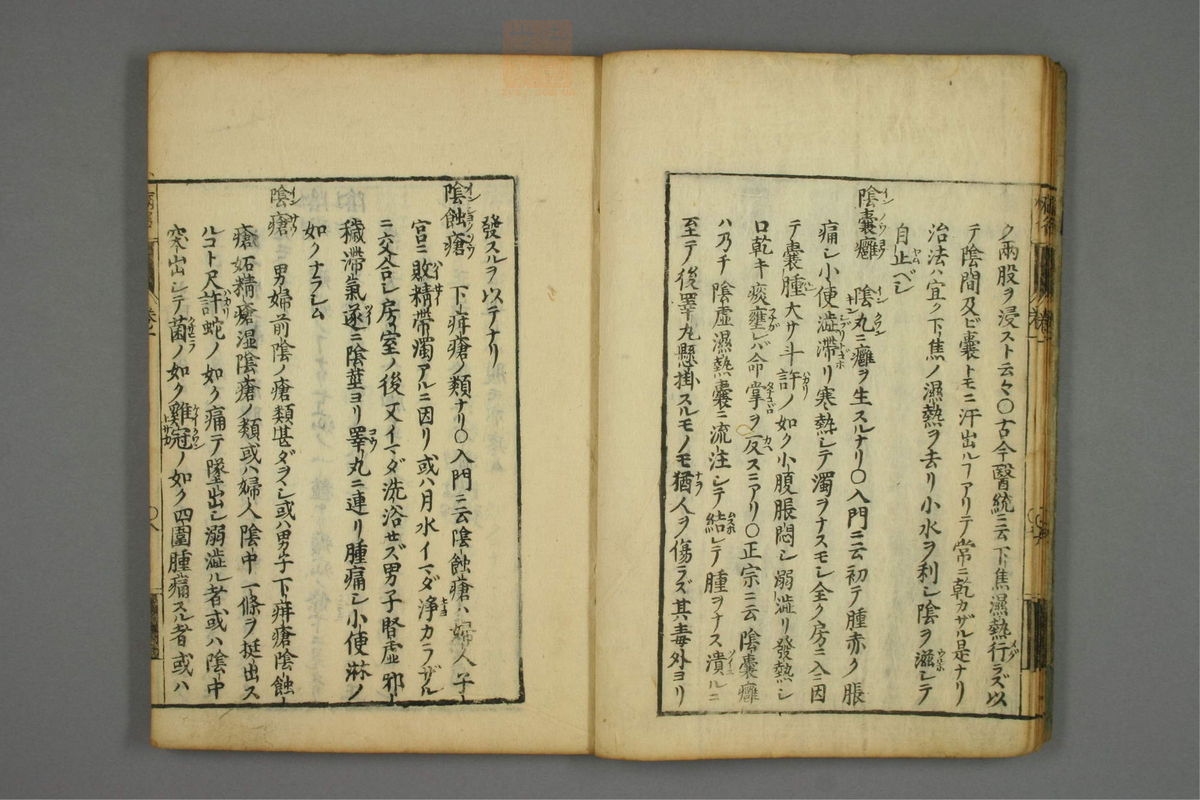 ク兩股ヲ浸スト云々〇古今醫統ニ云下焦濕熱行ラズ以
テ陰間及ビ囊トモニ汗出ルフアリテ常ニ乾カザル是ナリ
治法ハ宜ク下焦ノ濕熱ヲ去リ小水ヲ利シ陰ヲ滋シテ
自止ベシ
陰囊癰 陰丸ニ癰ヲ生スルナリ〇入門ニ云初テ腫赤ク脹
痛シ小便澁滯リ寒熱シテ濁ヲナスモシ全ク房ニ入ニ因
テ囊腫大サ斗許ノ如ク小腹脹悶シ溺澁リ發熱シ
口乾キ痰壅レバ命掌ヲ反スニアリ〇正宗ニ云陰囊癰
ハ乃チ陰虚濕熱囊ニ流注シテ結レテ腫ヲナス潰ルニ
至テ後睪丸懸掛スルモノモ猶人ヲ傷ラズ其毒外ヨリ
發スルヲ以テナリ
陰蝕瘡 下疳瘡ノ類ナリ〇入門ニ云陰蝕瘡ハ婦人子
宮ニ敗精帶濁アルニ因リ或ハ月水イマダ浄カラザル
ニ交合シ房室ノ後又イマダ洗浴セズ男子腎虚邪
穢滯氣遂ニ陰莖ヨリ睪丸ニ連リ腫痛シ小便淋ノ
如クナラシム
陰瘡 男婦前陰ノ瘡類甚ダヲヽシ或ハ男子下疳瘡陰蝕
瘡妬精瘡湿陰瘡ノ類或ハ婦人陰中一條ヲ挺出ス
ルコト尺許蛇ノ如ク痛テ墜出シ溺澁ル者或ハ陰中
突出シテ菌ノ如ク雞冠ノ如ク四圍腫痛スル者或ハ